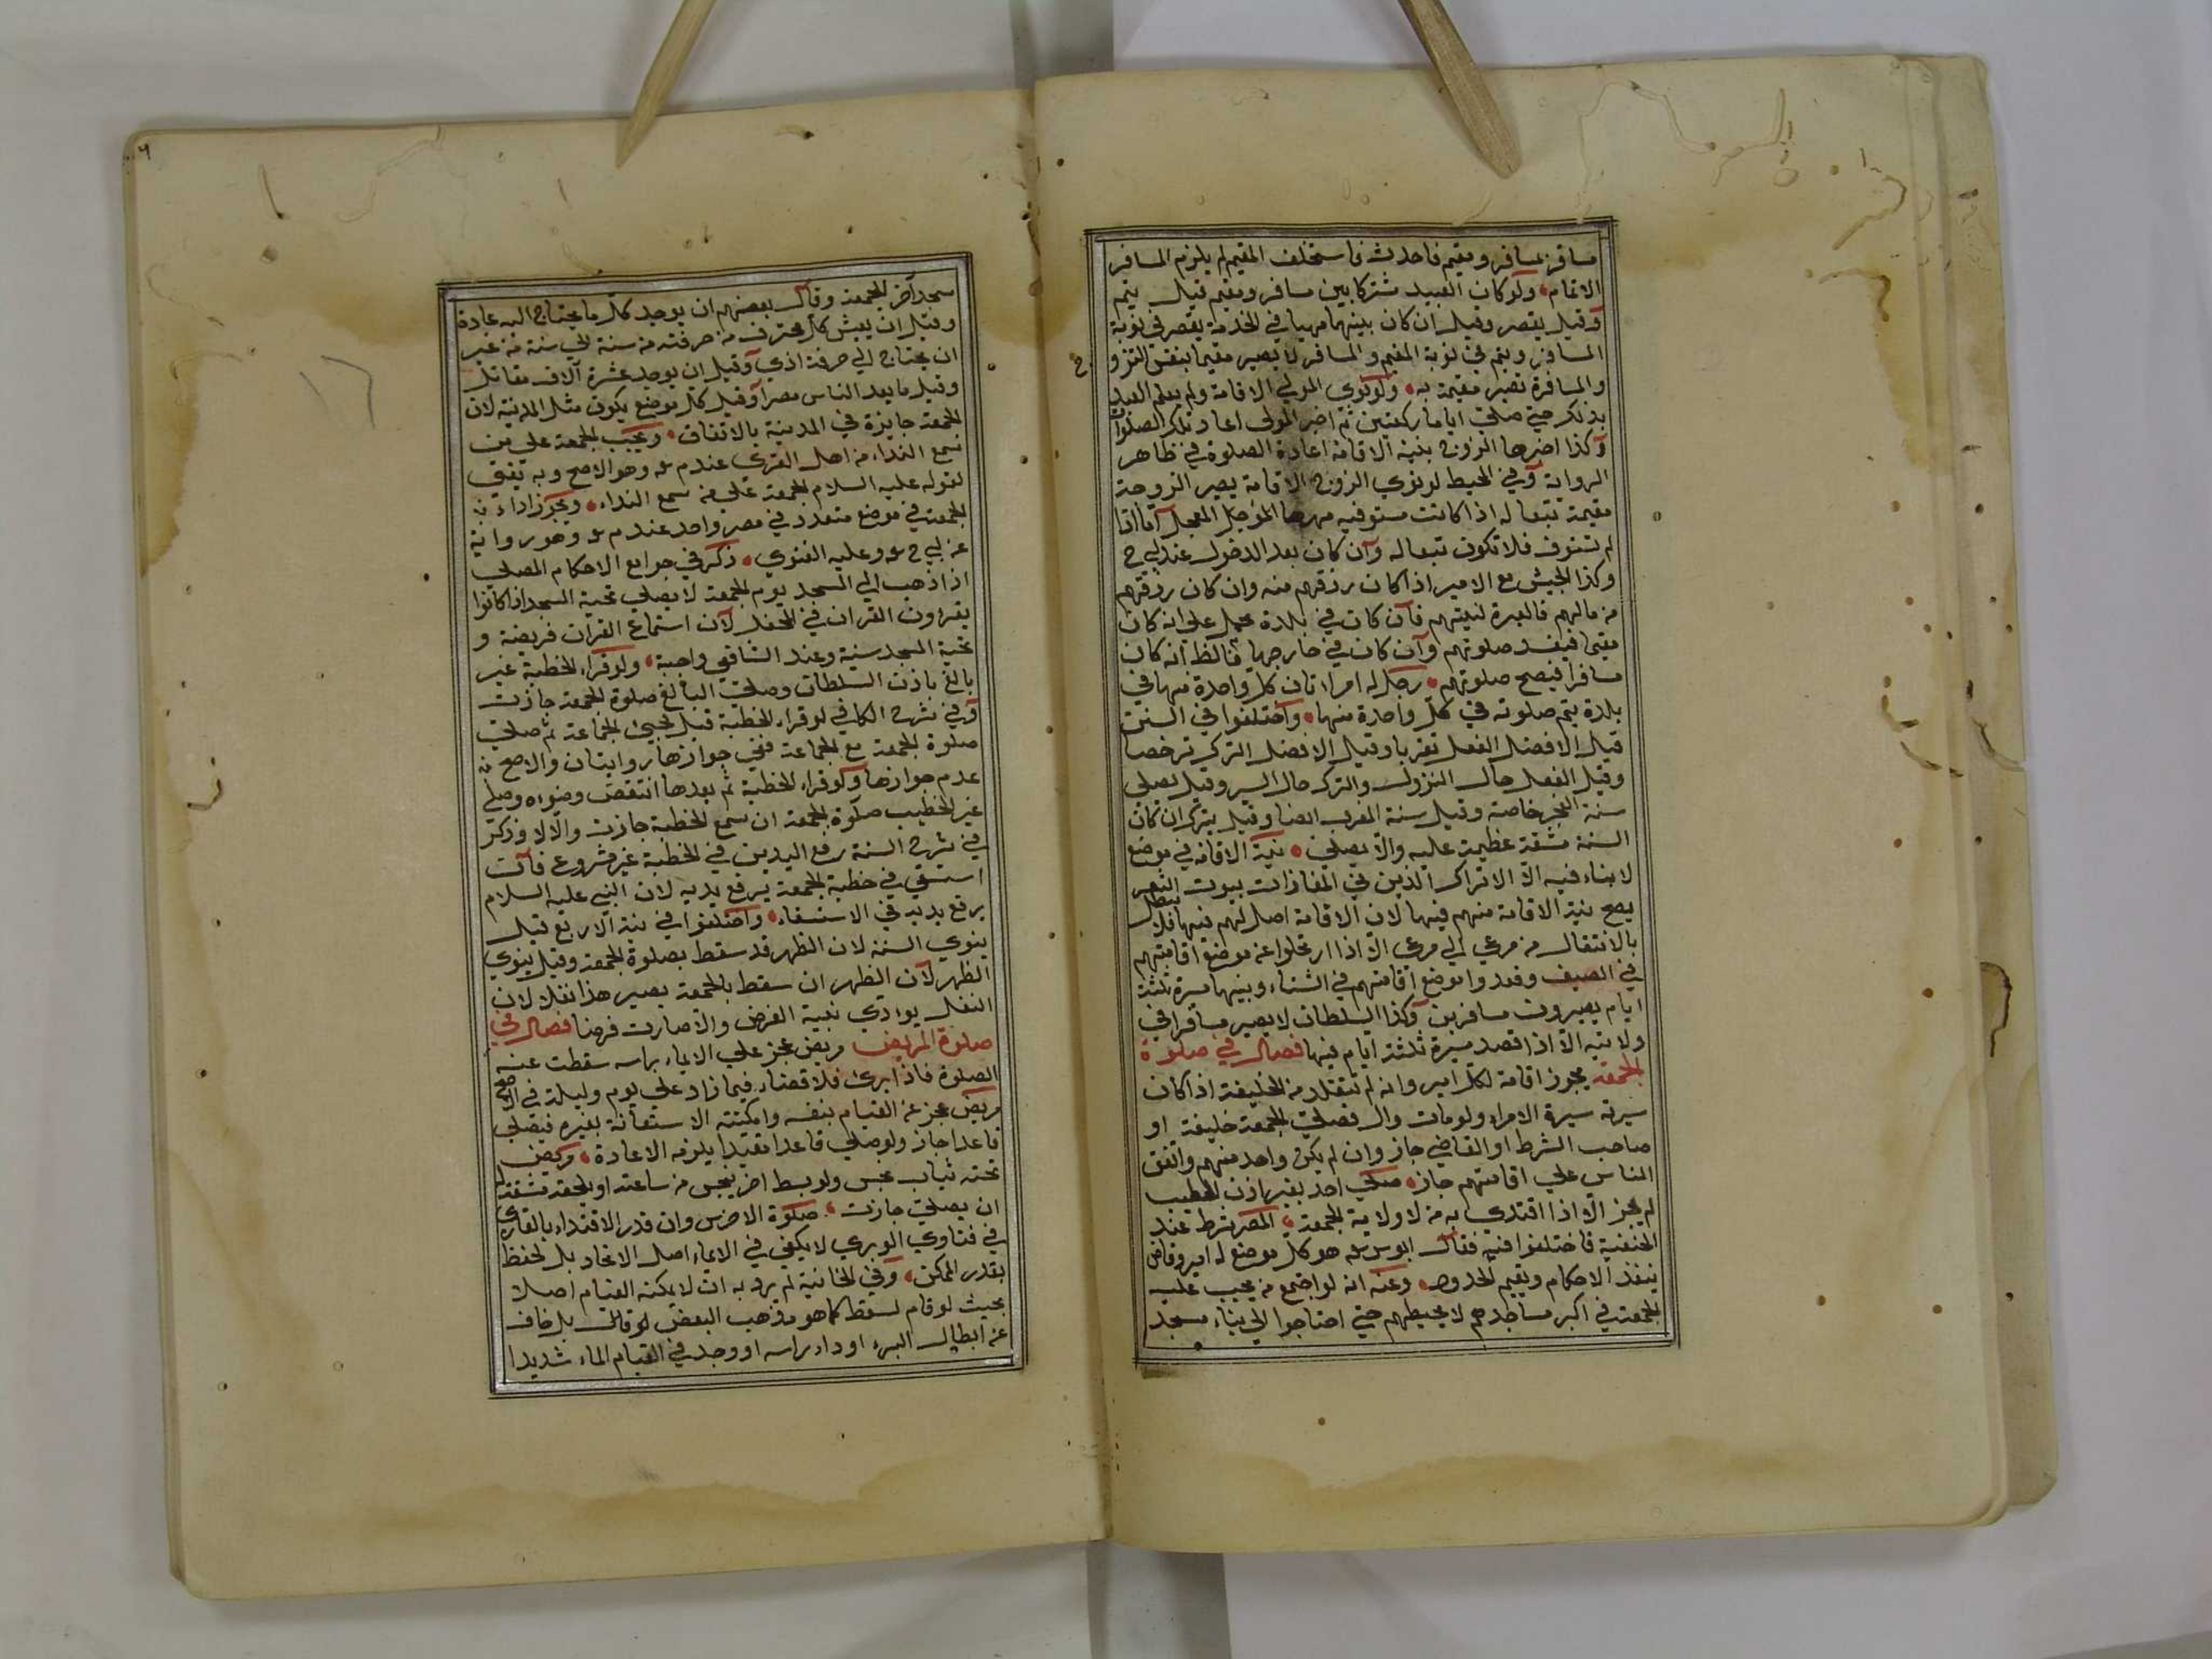 مسافر بمسافر ومقيم فاحدث فاستخلف المقيم لم يلزم المسافر
الاتمام ولو كان العبيد مشتركا بين مسافر ومقيم قيل يتم
وقيل يقصر وقيل ان كان بينهما مهيا في الخدمة يقصر في نوبة
المسافر ويتم في نوبة المقيم والمسافر لا يصير مقيما بنفس التزو ج
والمسافرة تصير مقيمة به ولو نوي المولي الاقامة ولم يعلم العبد
بذلك حتي صلي اياما ركعتين ثم اخبر المولي اعاد تلك الصلوات
وكذا اخبرها الزوج بنية الاقامة اعادة الصلوة في ظاهر
الرواية وفي المحيط لو نوي الزوج الاقامة يصير الزوجة
مقيمة تبعا له اذا كانت مستوفيه مهرها المؤجل المعجل اما اذا
لم تستوف فلا تكون تبعا له وان كان بعد الدخول عند ابي ح
وكذا الجيش مع الامير اذا كان رزقهم منه وان كان رزقهم
من مالهم فالعبرة لنيتهم فان كان في بلدة يحمل علي انه كان
مقيما فيفسد صلوتهم وان كان في خارجها فالظ انه كان
مسافرا فيصح صلوتهم رجل له امراتان كل واحدة منهما في
بلدة يتم صلوته في كل واحدة منهما واختلفوا في السنن
قيل الافضل الفعل تقربا وقيل الافضل الترك ترخصا
وقيل الفعل حال النزول والترك حال السير وقيل يصلي
سنة الفجر خاصة وقيل سنة المغرب ايضا وقيل يترك ان كان
السنة مشقة عظيمة عليه والا يصلي نية الاقامة في موضع
لا بناء فيه الا الاتراك الذين في المفازات بيوت الشعر
يصح نية الاقامة منهم فيها لان الاقامة اصل لهم فيها فلا تبطل
بالانتقال من مرعي الي مرعي الا اذا ارتحلوا عن موضع اقامتهم
في الصيف وقصدوا موضع اقامتهم في الشتاء وبينهما مسيرة ثلثة
ايام يصيرون مسافرين وكذا السلطان لا يصير مسافرا في
ولايته الا اذا قصد مسيرة ثلثة ايام فيها فصل في صلوة
الجمعة يجوز اقامة لكل امير وان لم تتقلد من الخليفة اذا كان
سيرته سيرة الامراء ولو مات وال فصلي الجمعة خليفة او
صاحب الشرط او القاضي جاز وان لم يكن واحد منهم واتفق
الناس علي اقامتهم جاز صلي احد بغير اذن الخطيب
لم يجز الا اذا اقتدي به من لا ولاية الجمعة المصر شرط عند
الحنفية فاختلفوا فيه فقال ابو س عه هو كل موضع له امير وقاض
ينفذ الاحكام ويقيم الحدود وعنه انه لو اجتمع من يجب عليه
الجمعة في اكبر مساجدهم لا يحيطهم حتي احتاجوا الي بناء مسجد
مسجد اخر للجمعة وقال بعضهم ان يوجد كل ما يحتاج اليه عادة
وقيل ان يعيش كل محترف من حرفته من سنة الي سنة من غير
ان يحتاج الي حرفة اخري وقيل ان يوجد عشرة آلاف مقاتل
وقيل ما يعد الناس مصرا وقيل كل موضع يكون مثل المدينة لان
الجمعة جايزة في المدينة بالاتفاق ويجب الجمعة علي من
سمع النداء من اهل القري عند م عه وهو الاصح وبه يفتي
لقوله عليه السلام الجمعة علي من سمع النداء ويجوز اداء
الجمعة في موضع متعدد في مصر واحد عند م عه وهو رواية
عن ابي ح عه وعليه الفتوي ذكر في جوامع الاحكام المصلي
اذا ذهب الي المسجد يوم الجمعة لا يصلي تحية المسجد اذا كانوا
يقراون القران في المحفل لان استماع القران فريضة و
تحية المسجد سنية وعند الشافعي واجبة ولو قراء الخطبة غير
بالغ باذن السلطان وصلي البالغ صلوة الجمعة جازت
وفي شرح الكافي لو قراء الخطبة قبل مجيئ الجماعة ثم صلي
صلوة الجمعة مع الجماعة ففي جوازها روايتان والاصح
عدم جوازها ولو قراء الخطبة ثم بعدها انتقض وضوءه وصلي
غير الخطيب صلوة الجمعة ان سمع الخطبة جازت والا لا وذكر
في شرح السنة رفع اليدين في الخطبة غير مشروع فان
استسقي في خطبة الجمعة يرفع يديه لان النبي عليه السلام
يرفع يديه في الاستسقاء واختلفوا في نية الاربع قيل
ينوي السنة لان الظهر قد سقط بصلوة الجمعة وقيل ينوي
الظهر لان الظهر ان سقط بالجمعة يصير هذا نفلا لان
النفل يوادي بنية الفرض والا صارت فرضا فصل في
صلوة المريض مريض عجز علي الايماء براسه سقطت عنه
الصلوة فاذا ابرئ فلا قضاء فيما زاد علي يوم وليلة في الاصح
مريض عجز عن القيام بنفسه وامكنته الاستعانة بغيره فيصلي
قاعدا جاز ولو صلي قاعدا مقيدا يلزمه الاعادة مريض
تحته ثياب نجس ولو بسط اخر ينجس من ساعته او يلحقه مشقة
ان يصلي جازت صلوة الاخرس وان قدر الاقتداء بالقاري
في فتاوي الوبري لا يكفي في الايماء اصل الاتحاد بل الحفظ
بقدر الممكن وفي الخانية لم يرد به ان لا يمكنه القيام اصلا
بحيث لو قام لسقط كما هو مذهب البعض لو قال بل خاف
عن ابطال البرء او داء براسه او وجد في القيام الماء شديدا